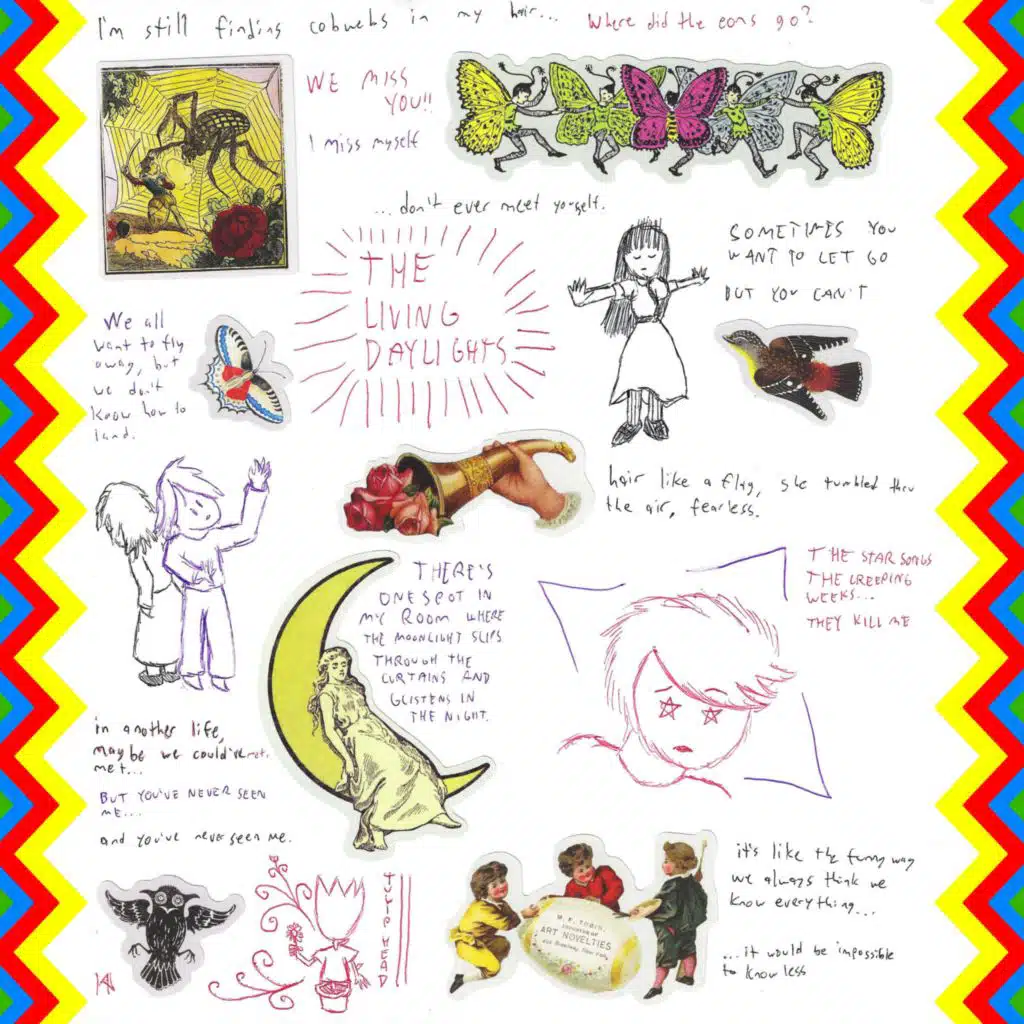 I'm still finding cobwebs in my hair... Where did the eons go?
WE MISS
YOU!!
I miss myself
...don't ever meet yourself.
THE
LIVING
DAYLIGHTS
SOMETIMES YOU
WANT TO LET GO
BUT YOU CAN'T
We all
want to fly
away, but
we don't
know how to
land.
hair like a flag, she tumbled thru
the air, fearless.
THERE'S
ONE SPOT IN
MY ROOM WHERE
THE MOONLIGHT SLIPS
THROUGH THE
CURTAINS AND
GLISTENS IN
THE NIGHT.
THE STAR SONGS
THE CREEPING
WEEKS...
THEY KILL ME
in another life,
maybe we could've
met...
BUT YOU'VE NEVER SEEN
ME...
and you've never seen me.
TULIP HEAD
M. F. TOBIN,
IMPORTER OF
ART NOVELTIES
Broadway, New York.
it's like the funny way
we always think we
know everything...
...it would be impossible
to know less